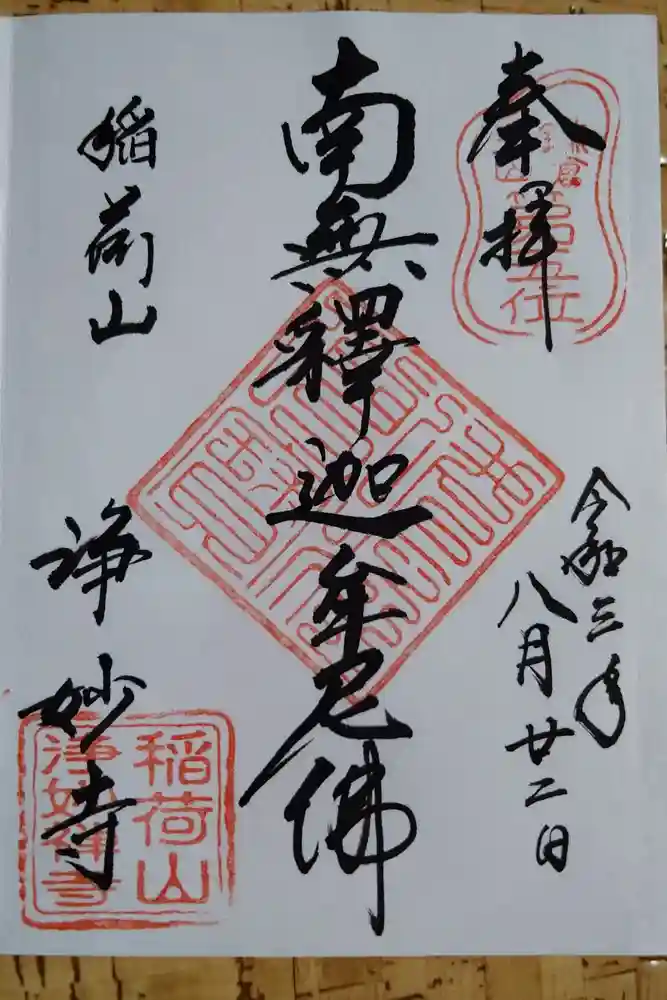 奉拝
第五位
令和三年
八月廿二日
南無釋迦牟尼佛
稲荷山
浄妙寺
稲荷山
浄妙禅寺